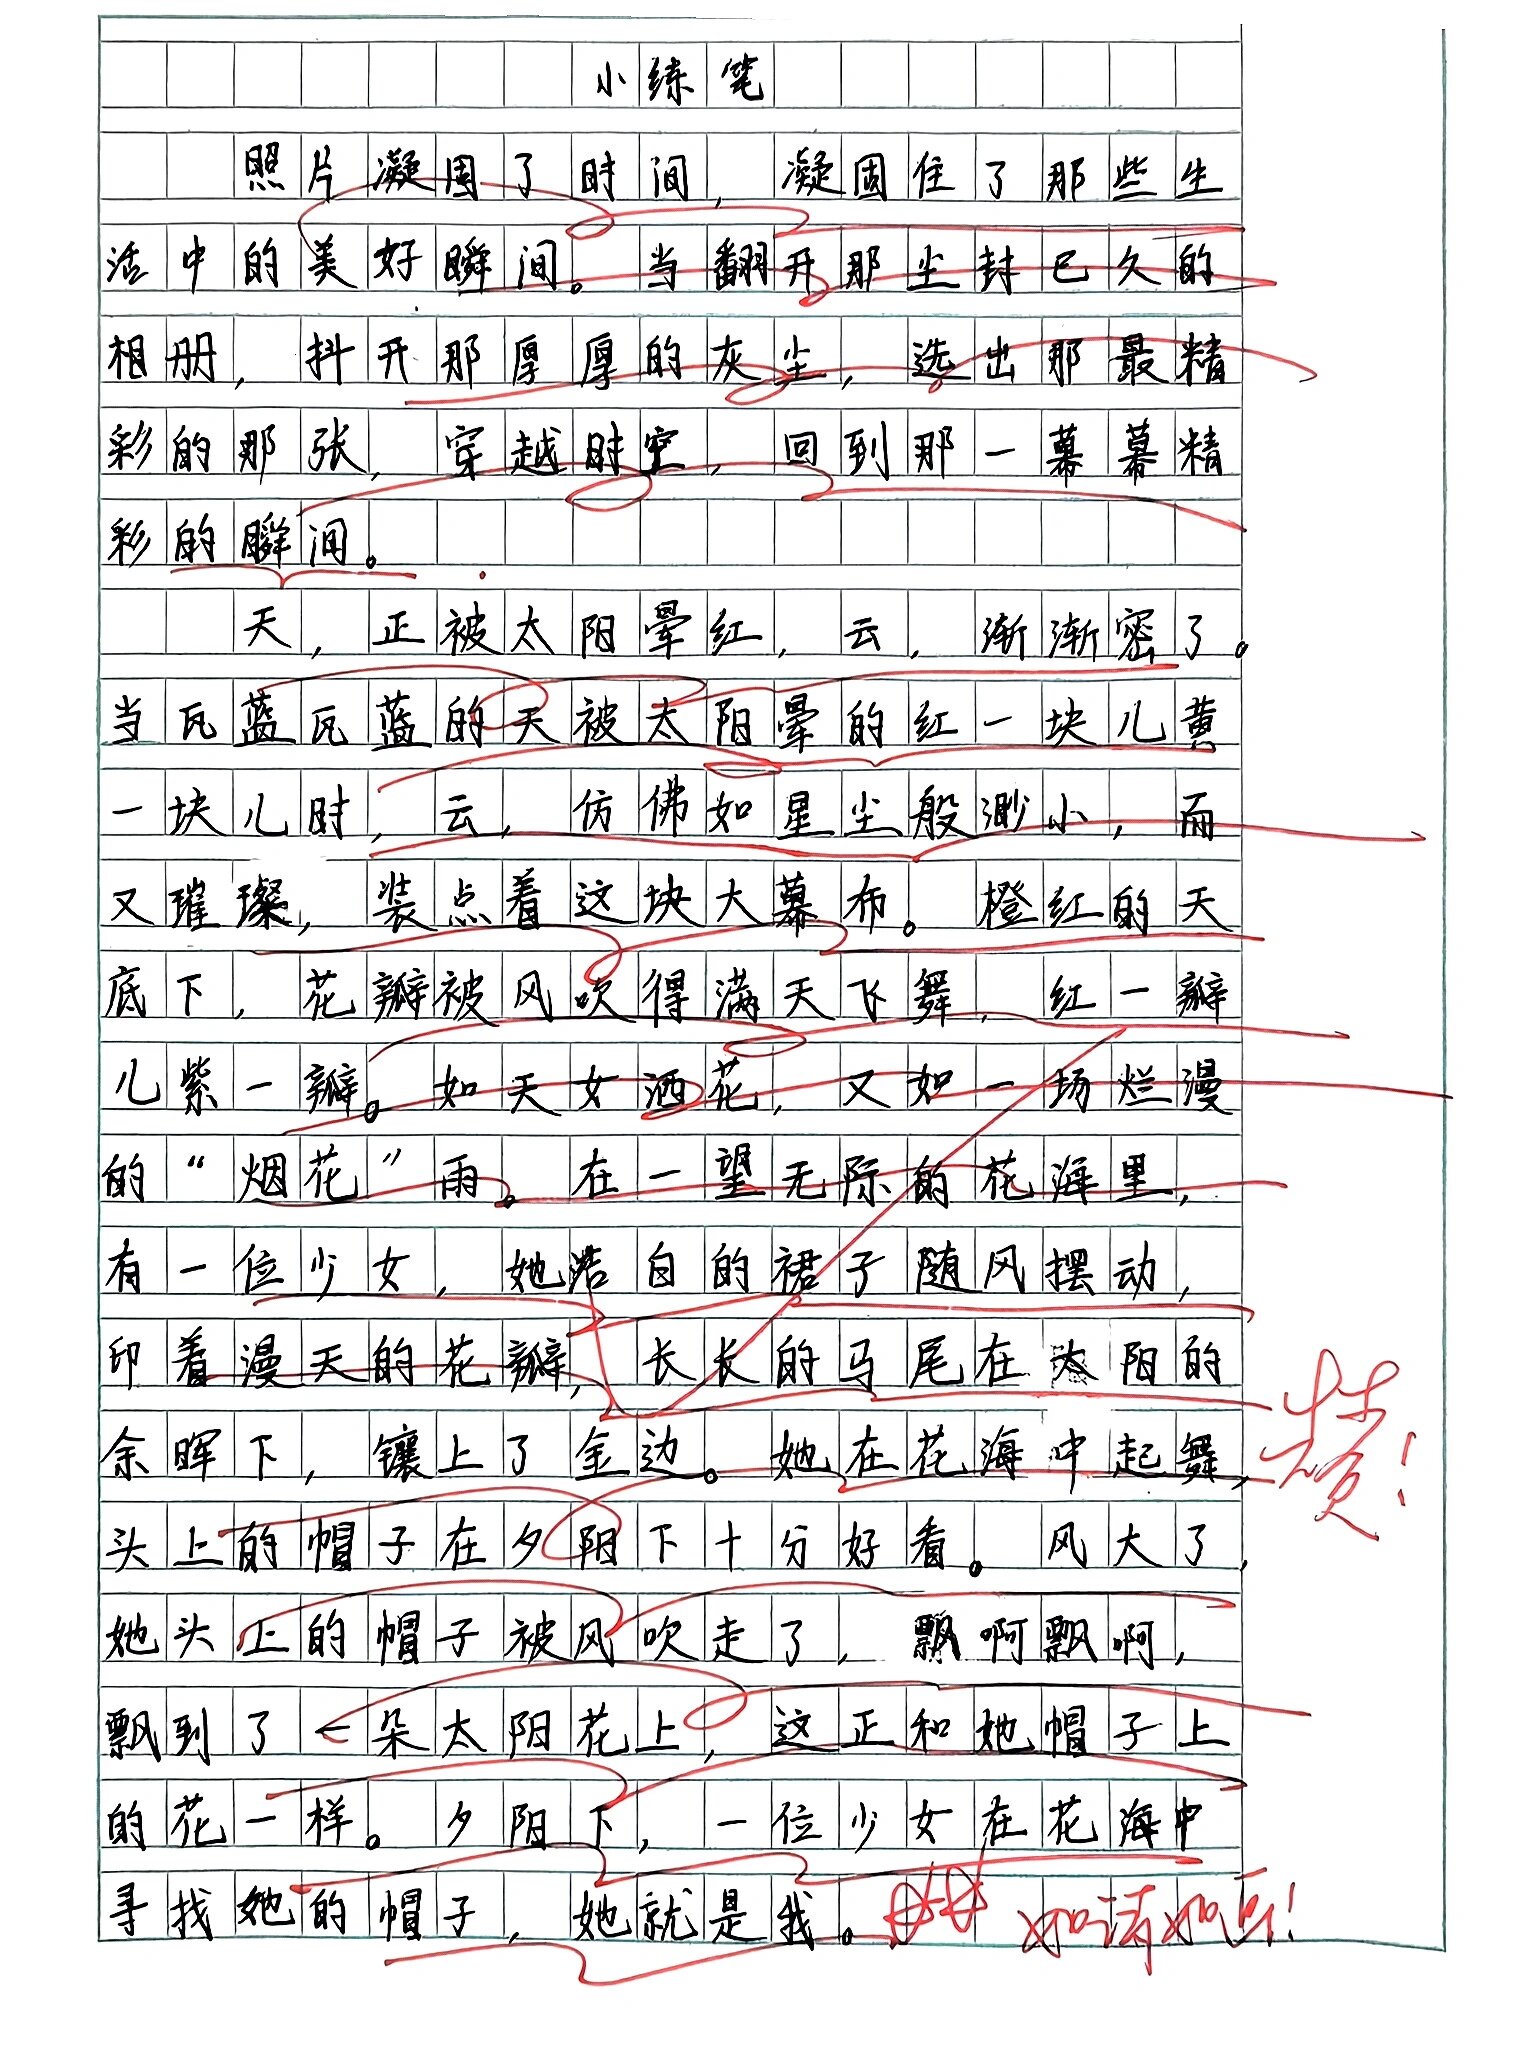 小练笔
照片凝固了时间，凝固住了那些生
活中的美好瞬间。当翻开那尘封已久的
相册，抖开那厚厚的灰尘，选出那最精
彩的那张，穿越时空，回到那一幕幕精
彩的瞬间。
天，正被太阳晕红，云，渐渐密了。
当瓦蓝瓦蓝的天被太阳晕的红一块儿黄
一块儿时，云，仿佛如星尘般渺小，而
又璀璨，装点着这块大幕布。橙红的天
底下，花瓣被风吹得满天飞舞，红一瓣
儿紫一瓣。如天女洒花，又如一场烂漫
的“烟花”雨。在一望无际的花海里，
有一位少女，她洁白的裙子随风摆动，
印着漫天的花瓣，长长的马尾在太阳的
余晖下，镶上了金边。她在花海中起舞，
头上的帽子在夕阳下十分好看。风大了，
她头上的帽子被风吹走了，飘啊飘啊，
飘到了一朵太阳花上，这正和她帽子上
的花一样。夕阳下，一位少女在花海中
寻找她的帽子，她就是我。
如诗如画！
赞！